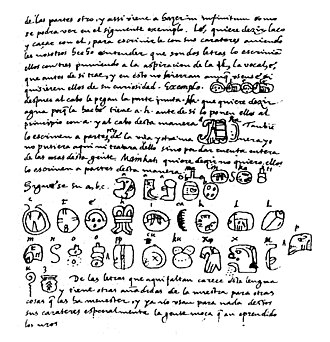 de las partes otro, y assi viene a hazer in infinitum como
se podra ver en el siguiente exemplo. Lé, quiere dezir laço
y caçar con el, para escrivirle con sus carateres aviendo
les nosotros hecho entender que son dos letras lo escrivian
ellos con tres puniendo a la aspiracion de la l, la vocal é,
que antes de si trae, y en esto no hierran aunq usense si
quisieren ellos de su curiosidad. Exemplo.
despues al cabo le pegan la parte junta. Ha que quiere dezir
agua porq la hache tiene a. h. ante de si lo ponen ellos al
principio con a. y al cabo desta manera Tambie
lo escriven a partes de la una y otra manera yo
no pusiera aqui ni tratara dello sino por dar cuenta entera
de las cosas desta gente. Mainkati quiere dezir no quiero, ellos
lo escriven a partes desta manera
Siguese su a, b, c. a a a b b
c t e h i ca k l l
m n o o pp p cu ku x x u
u z
De las letras que aqui faltan carece esta lengua
y tiene otras añadidas de la nuestra para otras
cosas q las ha menester, y ya no usan para nada destos
sus carateres especialmente la gente moça q an aprendido
los nros